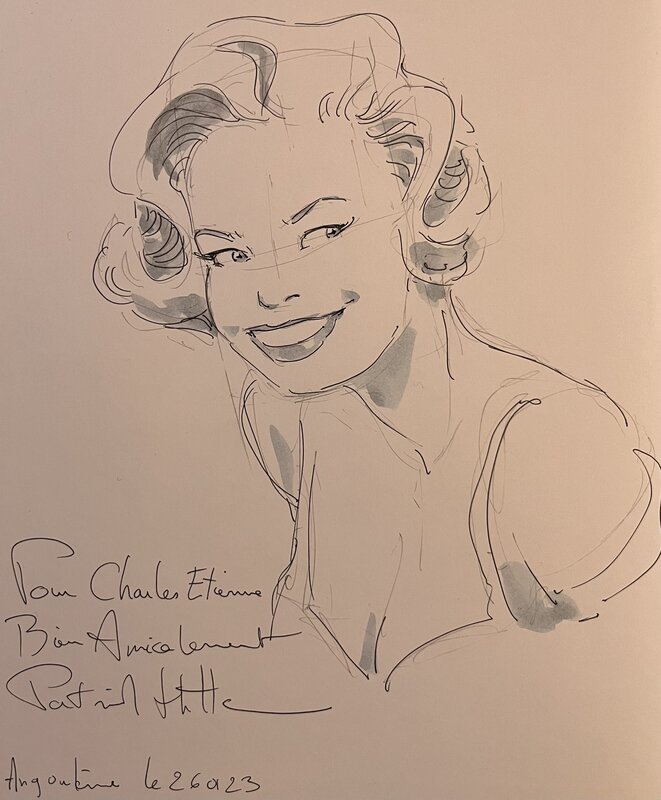 Pour Charles Etienne
Bien Amicalement
Patrick
Angoulême le 26 01 23